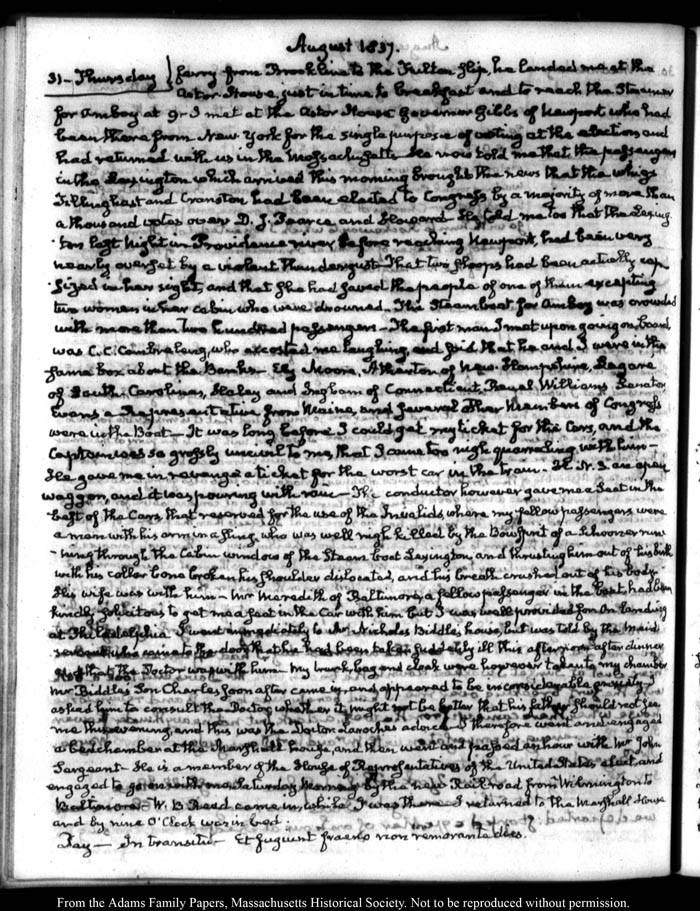 August 1837.
31 - Thursday } ferry from Brookline to the Fulton slip, he landed me at the
Astor House, just in time to breakfast and to reach the Steamer
for Amboy at 9. I met at the Astor House Governor Gibbs of Newport who had
been there from New York for the single purpose of voting at the election and
had returned with us in the Massachusetts. He now told me that the passengers
in the Lexington which arrived this morning brought the news that the whigs
Tillinghast and Cranston had been elected to Congress by a majority of more than
a thousand votes over D. J. Pearce and Howard. He told me too that the Lexing-
ton last Night in Providence river before reaching Newport, had been very
nearly overset by a violent thundergust. That two sloops had been actually cap-
sized in her sight, and that she had saved the people of one of them excepting
two women in her cabin who were drowned. The Steamboat for Amboy was crowded
with more than two hundred passengers. The first man I met upon going on board
was C. C. Cambreleng, who accosted me laughing, and said that he and I were in the
same box about the Banks. Ely Moore, Atherton of New Hampshire, Legare
of South Carolina, Haley and Ingham of Connecticut, Reuel Williams Senator
Evans a Representative from Maine, and several other Members of Congress
were in the Boat. It was long before I could get my ticket for the Cars, and the
Captain was so grossly uncivil to me, that I came too nigh quarrelling with him -
He gave me in revenge a ticket for the worst car in the train - It was an open
waggon, and it was pouring with rain - The conductor however gave me a seat in the
best of the Cars, that reserved for the use of the Invalids, where my fellow passengers were
a man with his arm in a sling, who was well nigh killed by the Bowsprit of a Schooner run-
ning through the Cabin window of the Steam boat Lexington, and thrusting him out of his birth
with his collar bone broken his shoulder dislocated, and his breath crushed out of his body
His wife was with him - Mr Meredith of Baltimore, a fellow passenger in the boat, had been
kindly solicitous to get me a seat in the Car with him but I was well provided for. On landing
at Philadelphia I went immediately to Mr Nicholas Biddle's house, but was told by the Maid
servant who came to the door that he had been taken suddenly ill this afternoon after dinner
and that the Doctor was with him. My trunk, bag and cloak were however taken to my chamber
Mr Biddle's Son Charles soon after came in, and appeared to be in considerable anxiety. I
asked him to consult the Doctor, whether it might not be better that his father should not see
me this evening, and this was the Doctor's advice. I therefore went and engaged
a bed chamber at the Marshall house, and then went and passed an hour with Mr John
Sergeant - He is a member of the House of Representatives of the United States elect, and
engaged to go on with me Saturday Morning by the new Railroad from Wilmington to
Baltimore. W. B. Reed came in, while I was there. I returned to the Marshall House
and by nine O'Clock was in bed.
Day - In transitu - Et fugiunt fraeno non remorante dies.
From the Adams Family Papers, Massachusetts Historical Society. Not to be reproduced without permission.